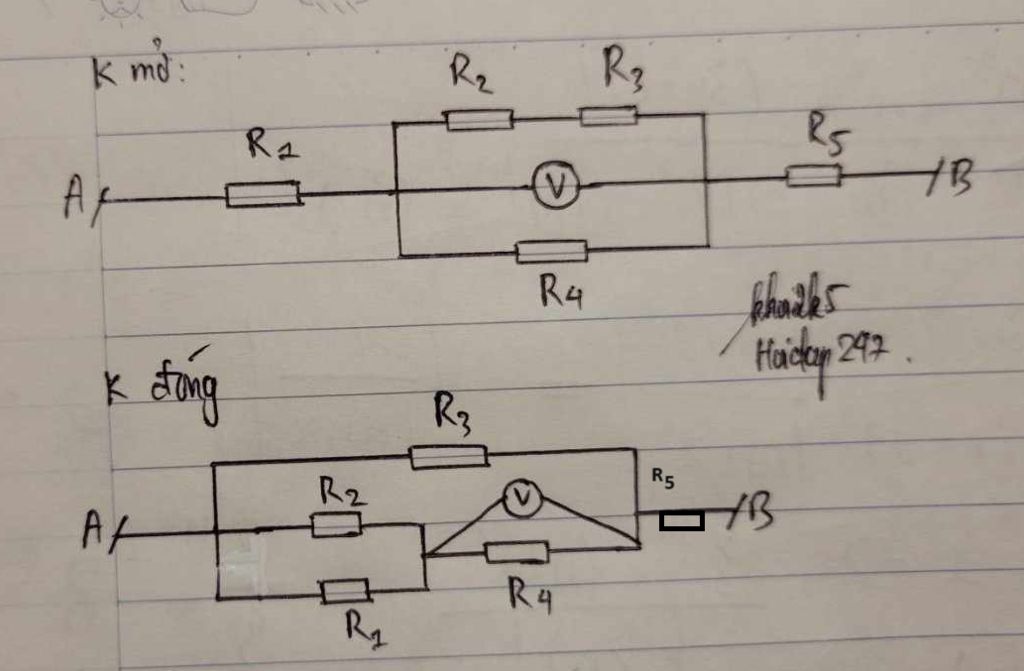 K mở:
R2 R3
R1
R5
A V B
R4
khoaik5
Hoidap247.
K đóng
R3
R5
R2 V
A B
R4
R1